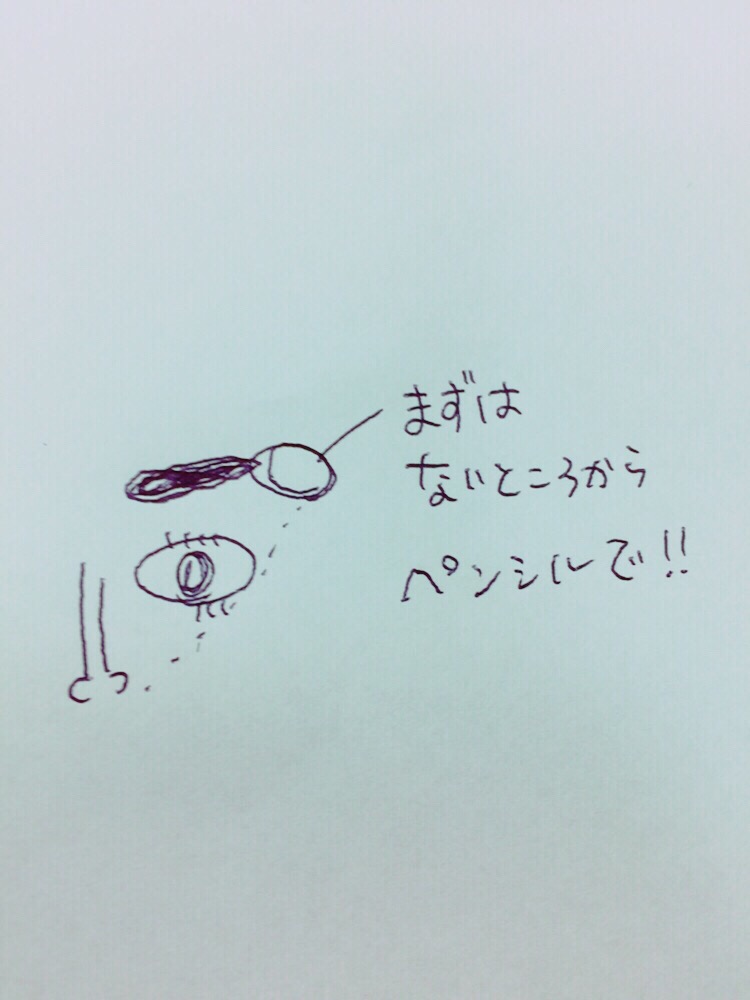 まずは
ないところから
ペンシルで!!